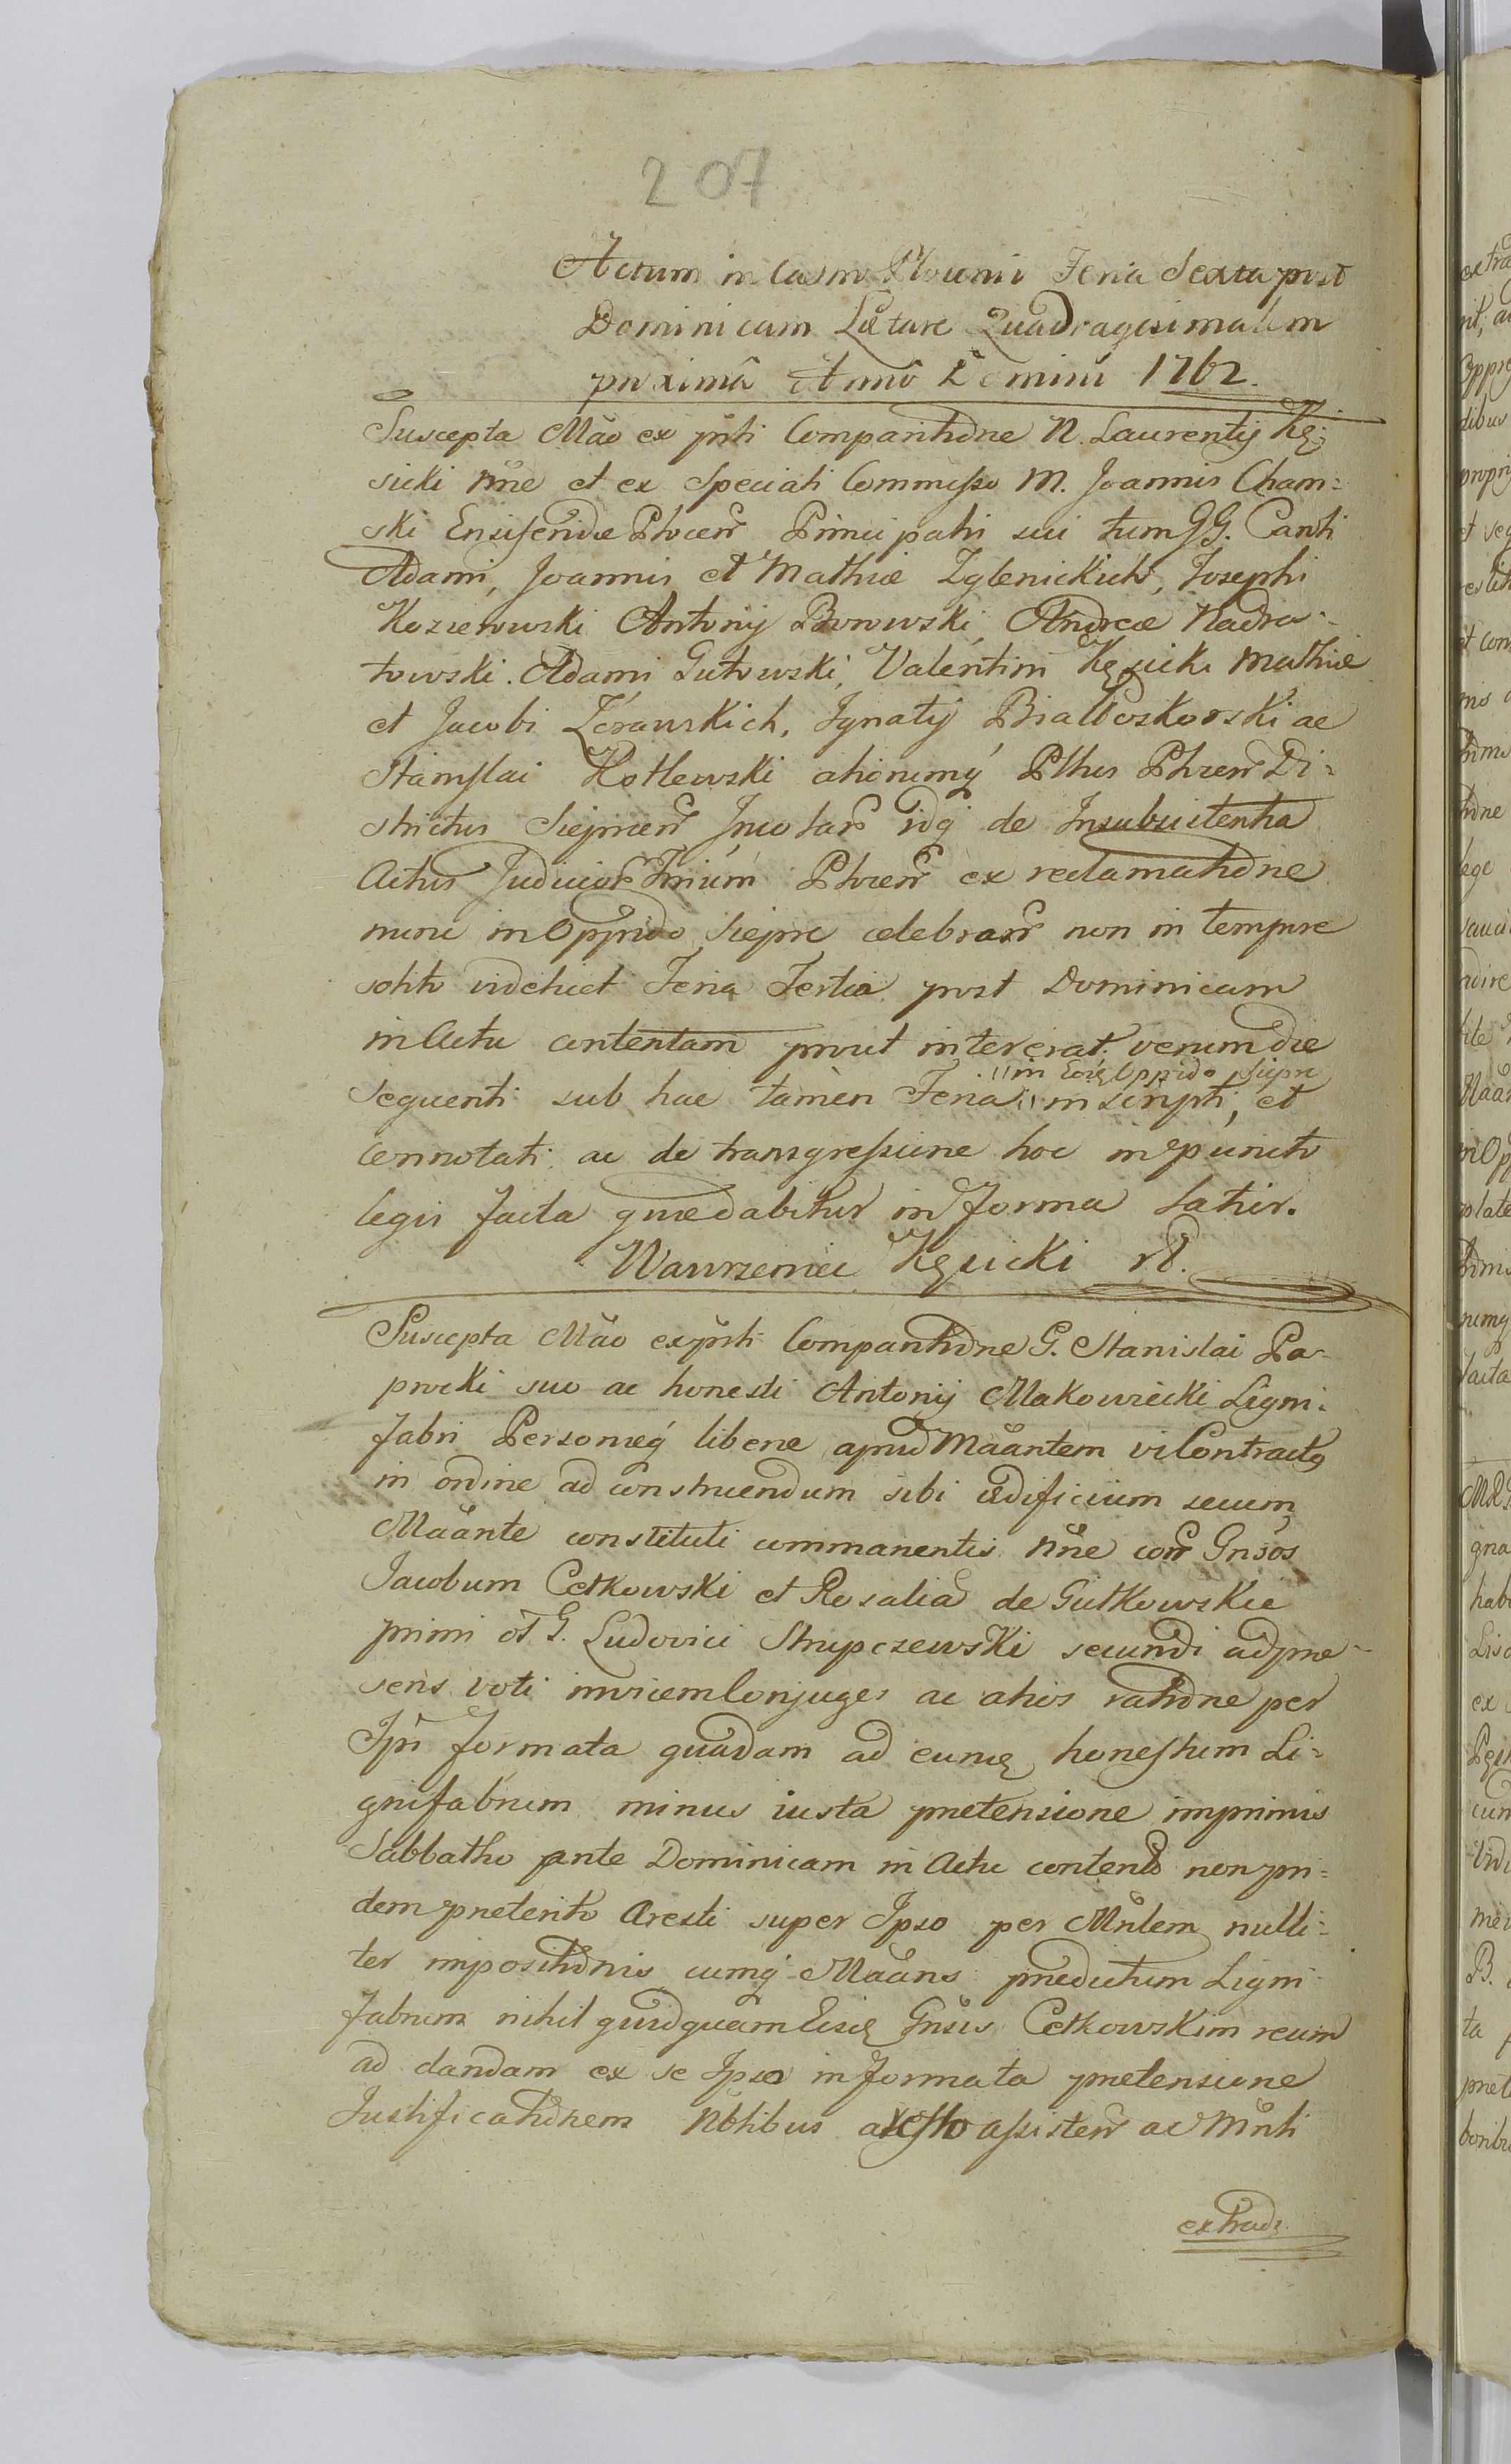 207
Actum in Castro Plocensi Feria Sexta post
Dominicam Lætare Quadragesimalem
proximâ Annô Domini 1762.
Suscepta Mãõ ex pñti Comparitiõne N. Laurentij Kę-
sicki nñe et ex speciali Commisso M. Joannis Cham-
ski Ensiferidæ Plocen Principalis sui tum GG. Caroli
Adami, Joannis et Mathiæ Zglenickich, Josephi
Koziewski Antonij Borowski, Andreæ Nadra-
towski. Adami Gutowski, Valentini Kęsicki Mathiæ
et Jacobi Żórawskich, Ignatij Białboskorski ac
Stanislai Kotlewski aliorumq Plttus Plocen Di-
strictus Sieprcen Incolar idq de Insubsistentia
Actus Judicior Trium Plocen ex reclamatiõne
nunc in Oppido Sieprc celebrar non in tempore
solito videlicet Feria Tertia post Dominicam
in Actu contentam prout intererat verum die
"in Eodẽ Oppido Sieprc
sequenti sub hac tamen Feria " inscripti, et
connotati ac de transgressione hoc in puncto
legis facta quæ dabitur in forma latior.
Wawrzeniec Kęsicki
Suscepta Mãõ ex pñti Comparitiõne G. Stanislai Pa-
procki suo ac honesti Antonij Makowiecki Ligni-
fabri Personæq liberæ apud Mãantem vi Contractus
in ordine ad construendum sibi ædificium secum
Mãante constituti commanentis nñe cõn Gñsos
Jacobum Cetkowski et Rosalia de Gutkowskie
primi ol G. Ludovici Strupczewski secundi ad præ-
sens voti invicem Conjuges ac alios ratiõne per
Ips formata quadam ad eumq honestum Li-
gnifabrum minus iusta prætensione imprimis
Sabbatho ante Dominicam in Actu content non pri-
dem præterito Aresti super Ipso per Mñlem nulli-
ter impositiõnis cumq Mãans prædictum Ligni
fabrum nihil quidquam Gñsis Cetkowskim reum
ad dandam ex se Ipso in formata prætensione
Justificatiõnem Nbtibus aresto assisten ac Mñli
extrad